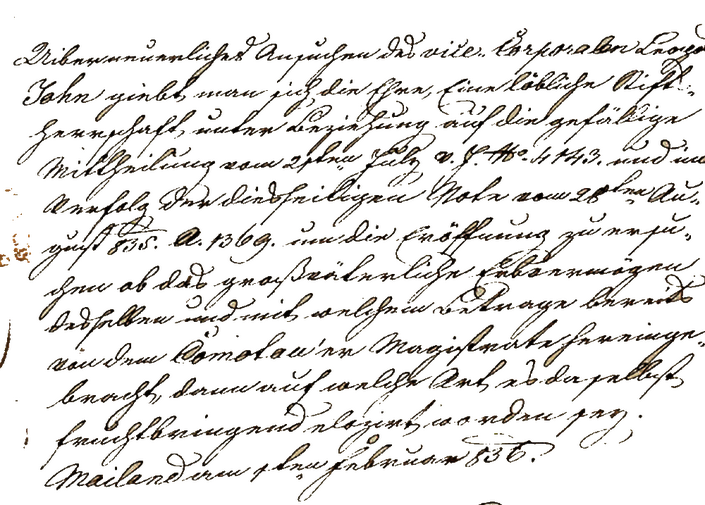 Uiber neuerliches Ansuchen des vice-Corporalen Leopo
John giebt man sich die Ehre, Eine löbliche Stift-
herrschaft, unter Beziehung auf die gefällige
Mittheilung vom 21ten July v. J. No. 4143. und im
Verfolg der diesseitigen Note vom 28ten Au-
gust 835. A. 1369. um die Eröffnung zu ersu-
chen ob das großväterliche Erbvermögen
desselben und mit welchem Betrage bereits
von dem Comotau'er Magistrate hereinge-
bracht, dann auf welche Art es daselbst
fruchtbringend elozirt worden sey.
Mailand am ten Februar 836.